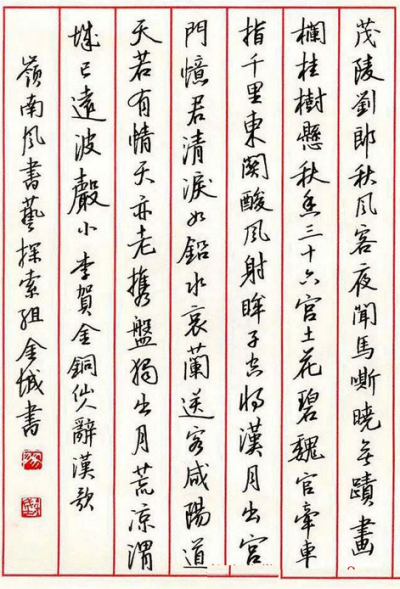 茂陵劉郎秋風客夜聞馬嘶曉無蹟畫
欄桂樹懸秋香三十六宮土花碧魏官牽車
指千里東關酸風射眸子空將漢月出宮
門憶君清淚如鉛水衰蘭送客咸陽道
天若有情天亦老攜盤獨出月荒涼渭
城已遠波聲小 李賀金銅仙人辭漢歌
嶺南風書藝探索組 金城書